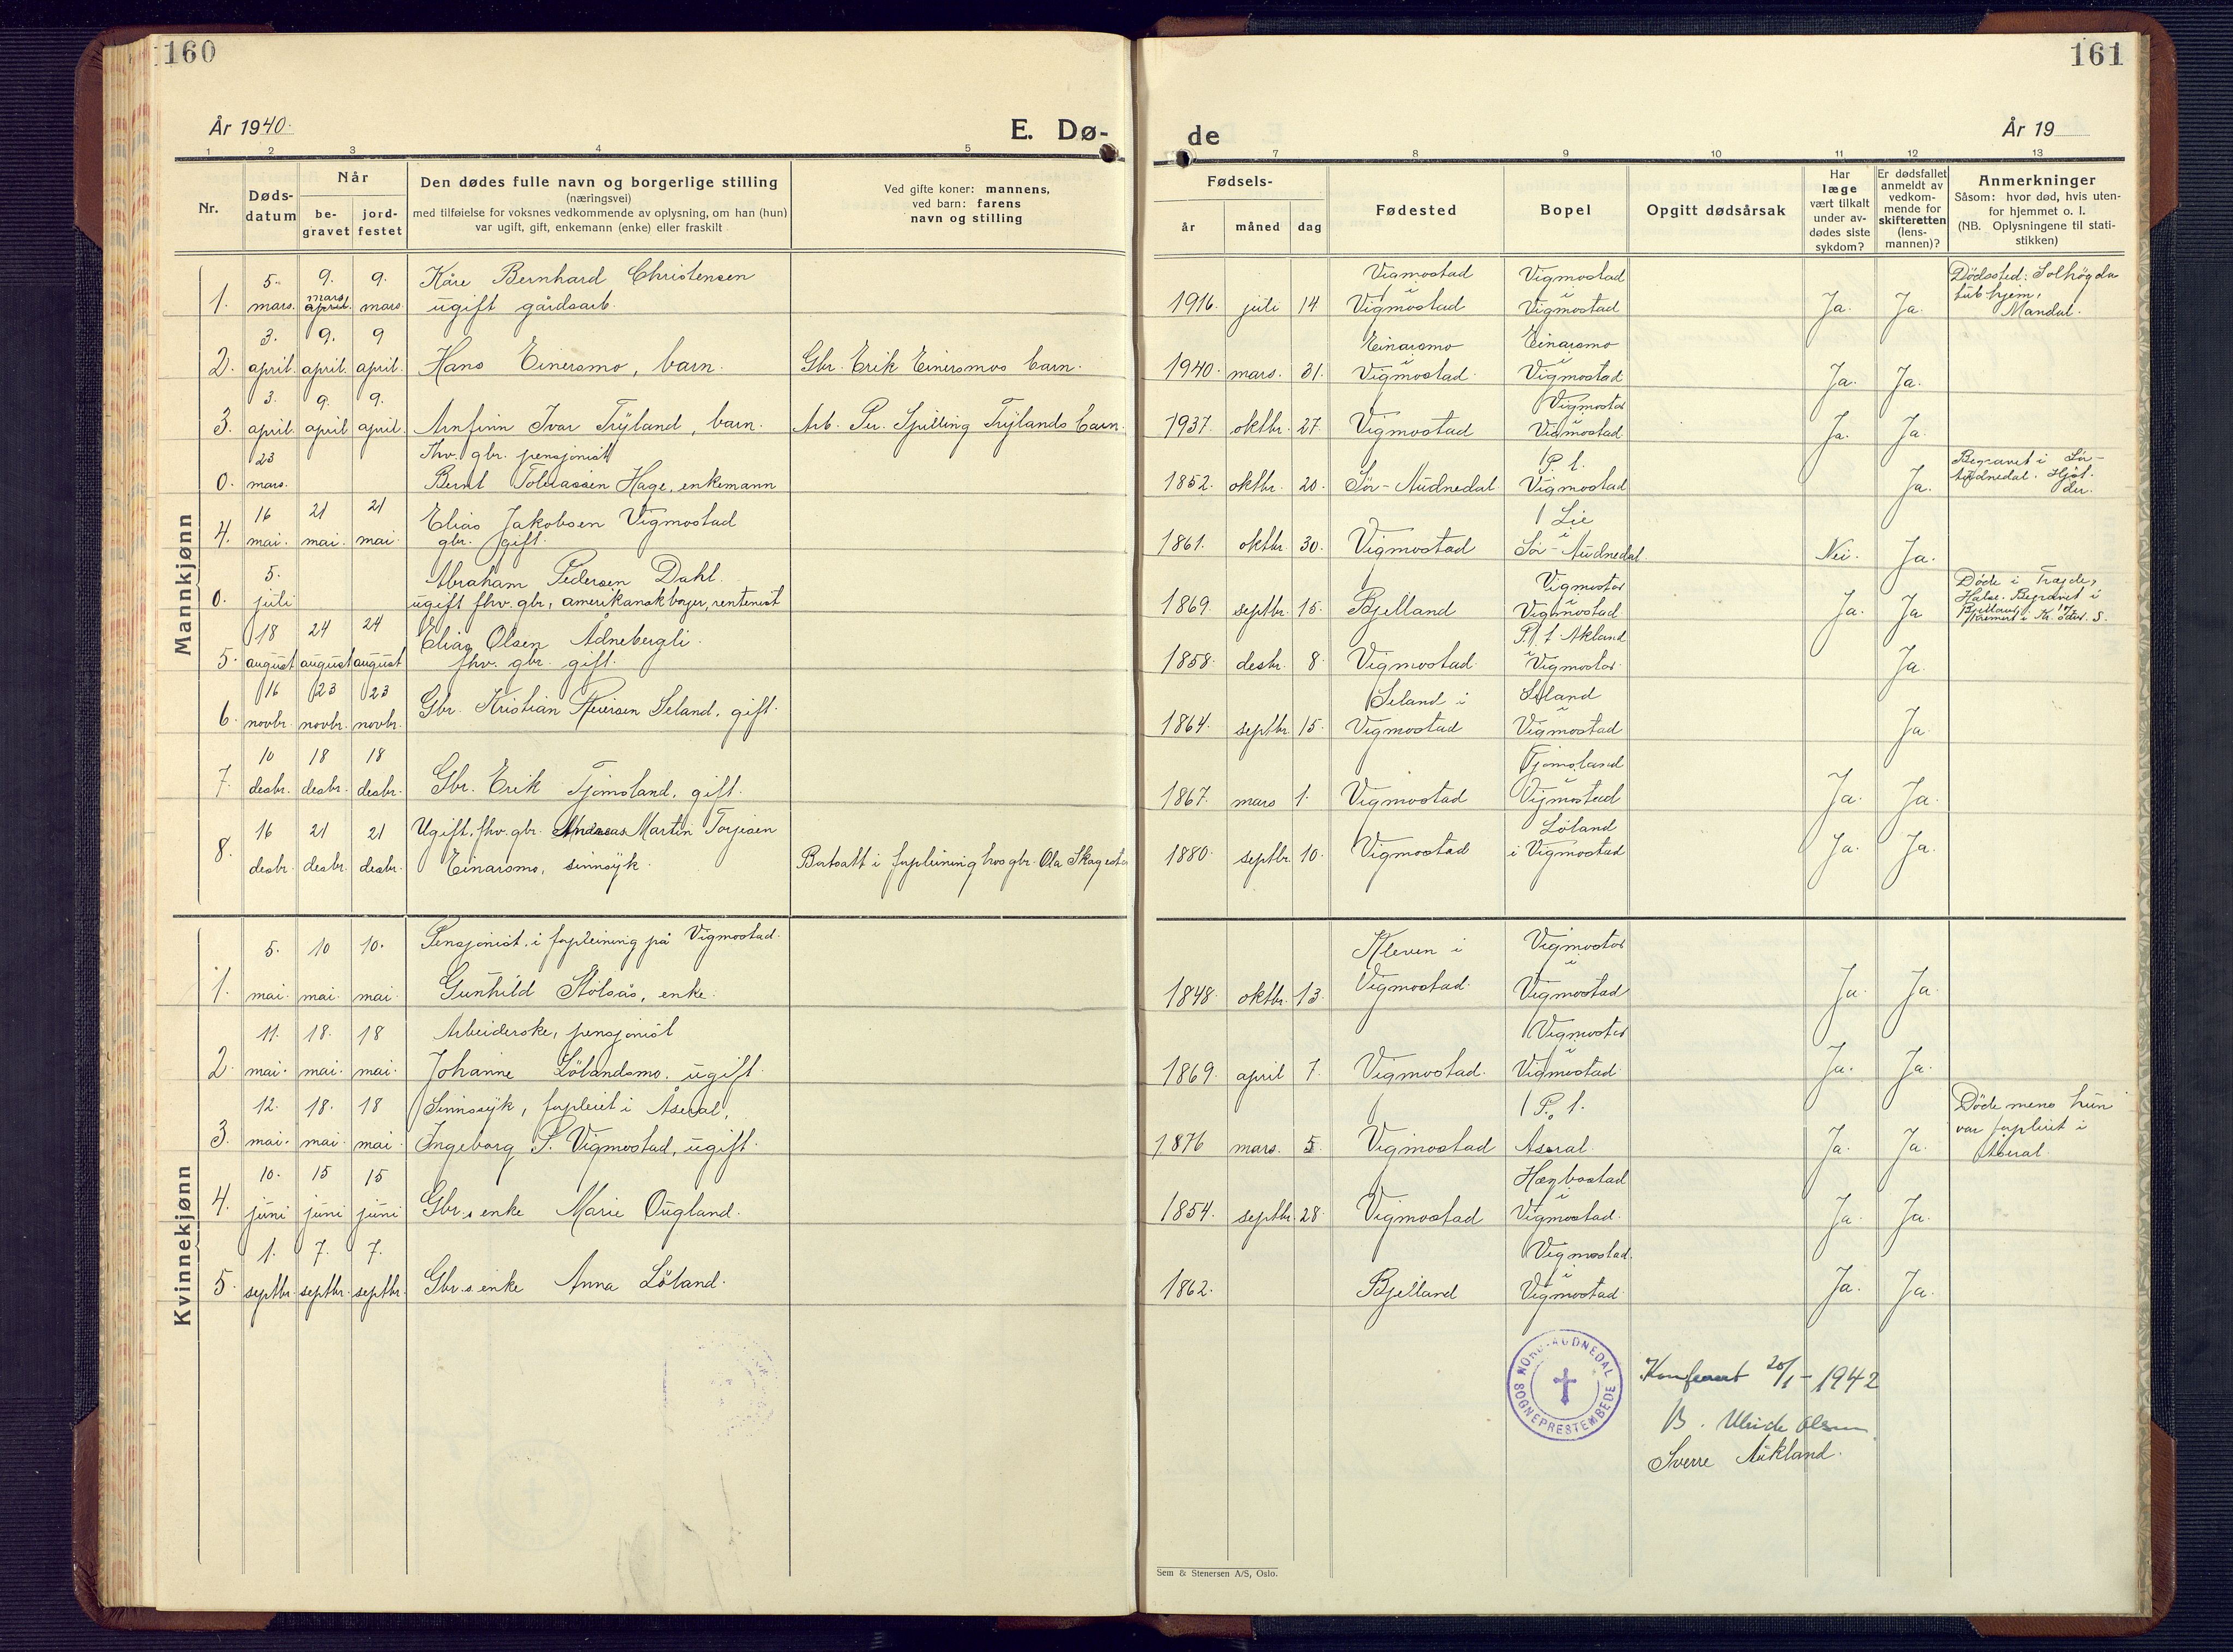 160
År 1940.
E. Dø-
1 2 3 4 5
Nr.
Døds-
datum
Når
be-
gravet
jord-
festet
Den dødes fulle navn og borgerlige stilling
(næringsvei)
med tilføielse for voksnes vedkommende av oplysning, om han (hun)
var ugift, gift, enkemann (enke) eller fraskilt
Ved gifte koner: mannens,
ved barn: farens
navn og stilling
Mannkjønn
5. 9. 9. Kåre Bernhard Christensen
1. mars. mars april. mars ugift gårdsarb.
3. 9. 9
2. april. april. april. Hans Einersmo, barn. Gbr. Erik Einersmos barn.
3. 9. 9.
3. april. april april. Arnfinn Ivar Trÿland, barn. Arb. Per Spilling Trÿlands barn.
23 Fhv. gbr. pensjonist
0. mars. Bernt Tobiassen Hage, enkemann
16 21 21 Elias Jakobsen Vigmostad
4. mai. mai. mai. gbr. gift.
5. Abraham Pedersen Dahl.
0. juli ugift fhv. gbr, amerikansk borger, rentenist
18 24 24 Elias Olsen Ådnebergli.
5. august august august fhv. gbr. gift.
16 23 23
6. novbr. novbr. novbr. Gbr. Kristian Reiersen Seland, gift.
10 18 18
7. desbr. desbr. desbr. Gbr. Erik Tjomsland, gift.
16 21 21 Ugift, fhv. gbr. Andreas Martin Torjesen
8. desbr. desbr. desbr. Einarsmo, sinnsÿk. Bortsatt i forpleining hos gbr. Ola Skagesta
Kvinnekjønn
5. 10 10. Pensjonist, i forpleining på Vigmostad.
1. mai. mai. mai. Gunhild Stölsås, enke.
11. 18. 18 Arbeiderske, pensjonist
2. mai. mai. mai. Johanne Lölandsmo. ugift.
12. 18. 18 Sinnssÿk, forpleiet i Åseral,
3. mai. mai. mai. Ingeborg P. Vigmostad, ugift.
10. 15 15
4. juni juni juni Gbr.s enke Marie Ougland.
1. 7. 7.
5. septbr. septbr. septbr. Gbr.s. enke Anna Löland.
161
de
År 19
7 8 9 10 11 12 13
Fødsels-
år måned dag
Fødested
Bopel
Opgitt dødsårsak
Har
læge
vært tilkalt
under av-
dødes siste
sykdom?
Er dødsfallet
anmeldt av
vedkom-
mende for
skifteretten
(lens-
mannen)?
Anmerkninger
Såsom: hvor død, hvis uten-
for hjemmet o. l.
(NB. Oplysningene til stati-
stikken)
Vigmostad Vigmostad Dödssted: Solhögda
i i tub. hjem,
1916. juli 14 Vigmostad Vigmostad Ja. Ja. Mandal.
Einarsmo Einarsmo
i i
1940. mars. 31. Vigmostad. Vigmostad Ja. Ja.
Vigmostad
i
1937. oktbr. 27. Vigmostad Vigmostad Ja. Ja.
P. t. Begravet i Sör-
1852. oktbr. 20. Sör-Audnedal. Vigmostad Ja. Audnedal.
Lie
i
1861. oktbr. 30. Vigmostad Sör-Audnedal. Nei. Ja.
Vigmostad Döde i
i Halse. Begravet i
1869. septbr. 15. Bjelland Vigmostad Ja. Ja
P. t. Akland
1858. desbr. 8. Vigmostad. i Vigmostad. Ja.
Seland i Seland
i
1864. septbr. 15. Vigmostad Vigmostad Ja.
Tjomsland
i
1867. mars 1. Vigmostad Vigmostad Ja. Ja.
Löland
1880. septbr. 10. Vigmostad i Vigmostad Ja. Ja.
Kleven i Vigmostad
i
1848. oktbr. 13. Vigmostad. Vigmostad Ja. Ja.
Vigmostad
i
1869. april 7. Vigmostad. Vigmostad. Ja. Ja.
P. t. Döde mens hun
var forpleiet i
1876 mars. 5. Vigmostad Aseral. Ja. Ja. Åseral.
Hægbostad
i
1854. septbr. 28. Vigmostad Vigmostad. Ja. Ja.
Vigmostad.
i
1862. Bjelland Vigmostad. Ja. Ja.
NORD-AUDNEDAL
SOGNEPRESTEMBEDE
Konferert 20/1-1942
B. Ulrik Olsen
Sverre Aukland.
Sem & Stenersen A/S, Oslo.